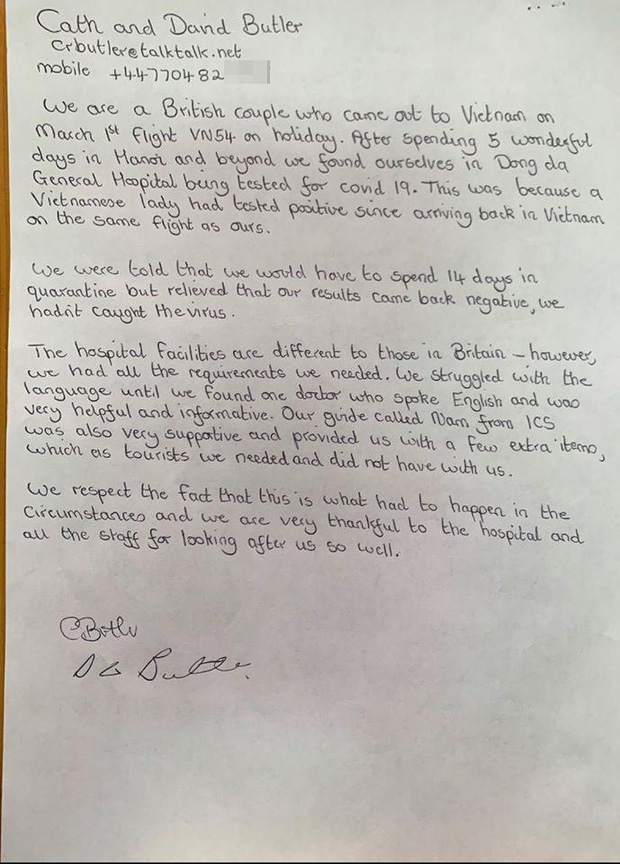 Cath and David Butler
crbutler@talktalk.net
mobile +44770482
We are a British couple who came out to Vietnam on
March 1st flight VN54 on holiday. After spending 5 wonderful
days in Hanoi and beyond we found ourselves in Dong da
General Hospital being tested for covid 19. This was because a
Vietnamese lady had tested positive since arriving back in Vietnam
on the same flight as ours.
We were told that we would have to spend 14 days in
quarantine but relieved that our results came back negative, we
hadn't caught the virus.
The hospital facilities are different to those in Britain – however,
we had all the requirements we needed. We struggled with the
language until we found one doctor who spoke English and was
very helpful and informative. Our guide called Nam from ICS
was also very supportive and provided us with a few extra items,
which as tourists we needed and did not have with us.
We respect the fact that this is what had to happen in the
circumstances and we are very thankful to the hospital and
all the staff for looking after us so well.
CButler
D G Butler